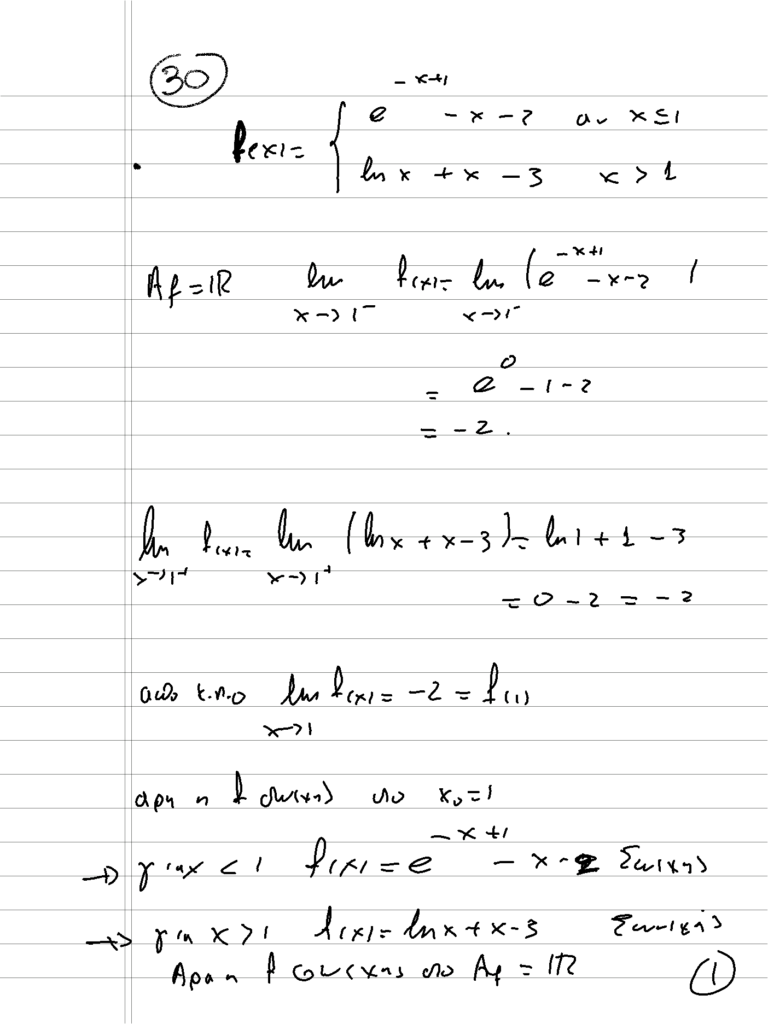 30
f(x) = { e^{-x+1} - x - 2 αν x ≤ 1
ln x + x - 3 x > 1
Af = ℝ lim_{x→1⁻} f(x) = lim_{x→1⁻} (e^{-x+1} - x - 2)
= e^0 - 1 - 2
= -2.
lim_{x→1⁺} f(x) = lim_{x→1⁺} (ln x + x - 3) = ln 1 + 1 - 3
= 0 - 2 = -2
από κ.π.ο lim_{x→1} f(x) = -2 = f(1)
αρα η f συνεχης στο x₀ = 1
→ για x < 1 f(x) = e^{-x+1} - x - 2 Συνεχης
→ για x > 1 f(x) = ln x + x - 3 Συνεχης
Αρα η f συνεχης στο Af = ℝ
1